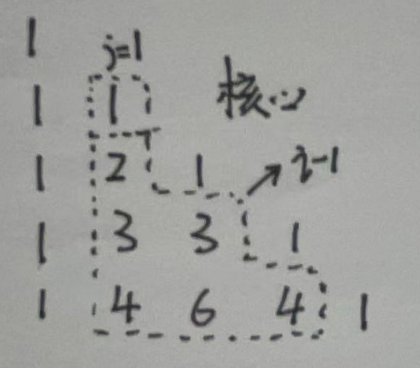 1
j=1
1 1 核心
1 2 1 i-1
1 3 3 1
1 4 6 4 1